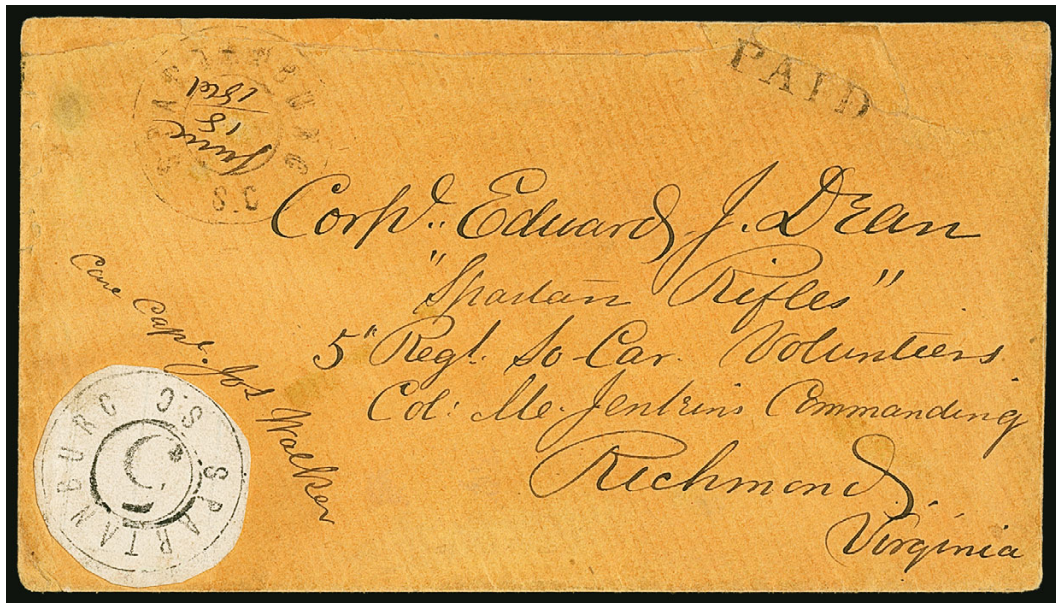 SPARTANBURG S.C.
June
18
1861
PAID
Corpl. Edward J. Dean
"Spartan Rifles"
5" Regt. So. Car. Volunteers
Col: M. Jenkins Commanding
Richmond,
Virginia
Care Capt. Jos Walker
SPARTANBURG S.C.
5